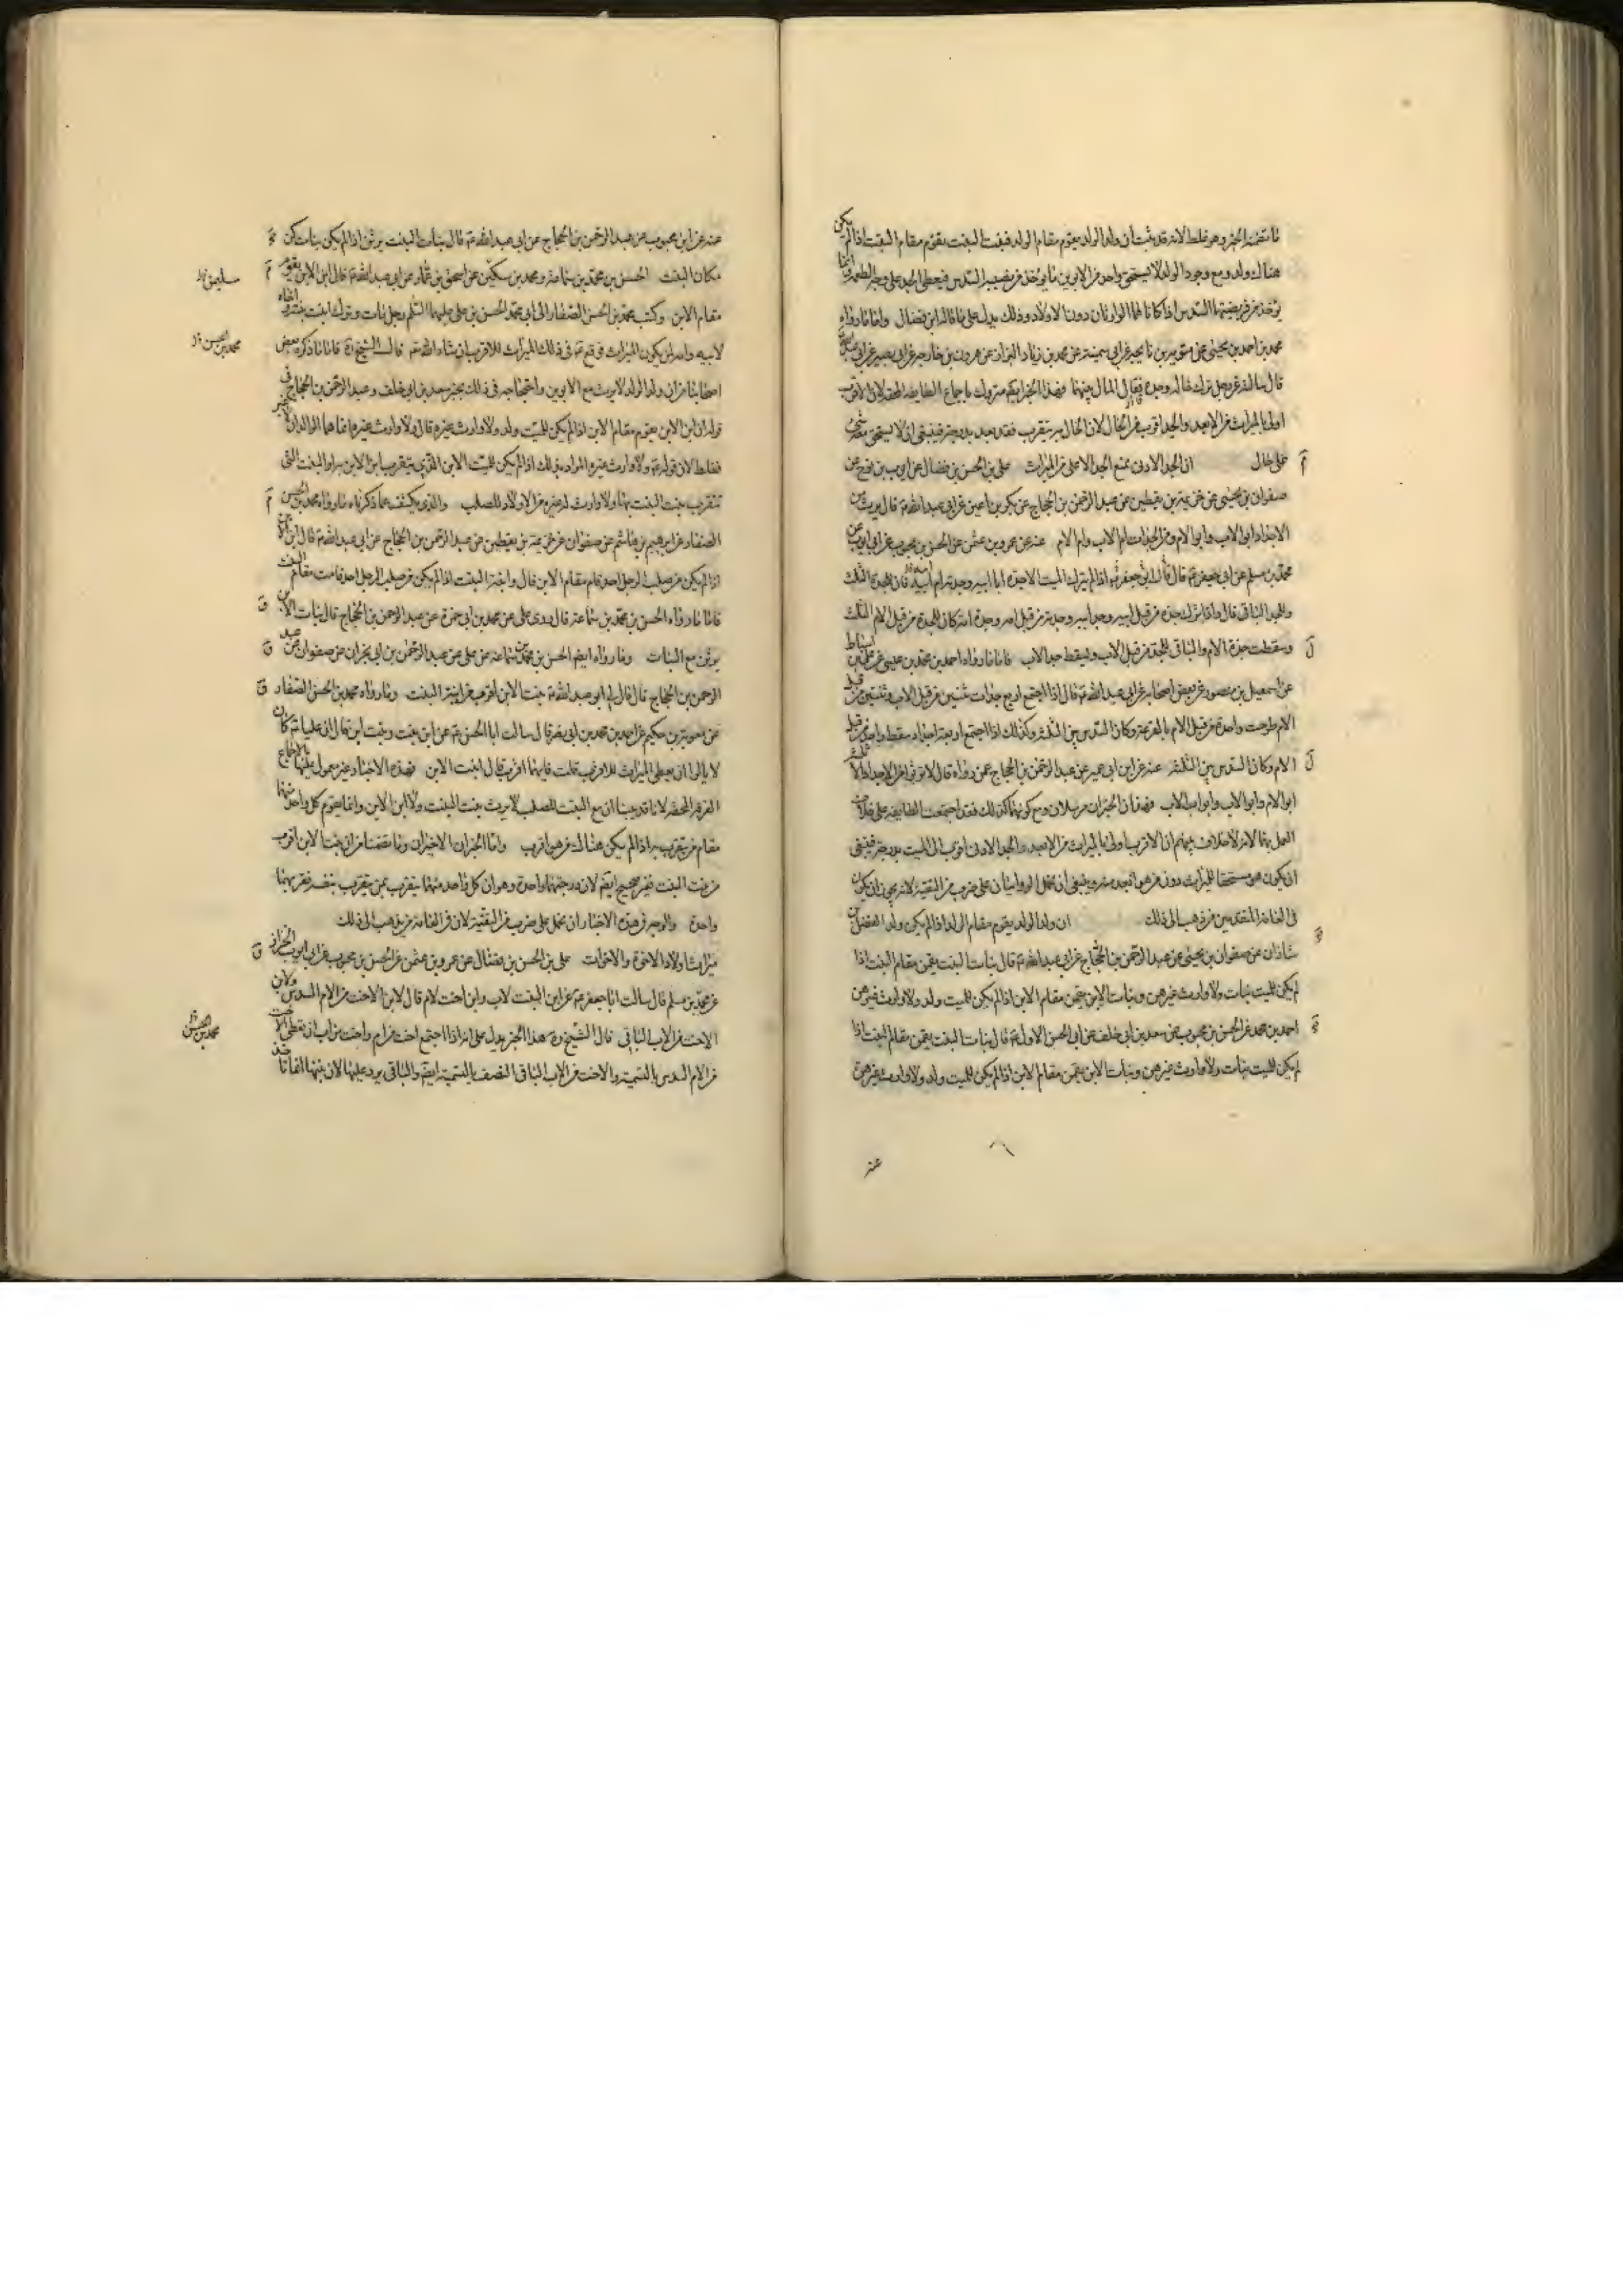 ما تضمنه الخبر وهو غلط لانه قد ثبت ان ولد الولد يقوم مقام الولد فبنت البنت تقوم مقام البنت اذا لم يكن
هناك ولد ومع وجود الولد لا يستحق واحد من الابوين ما يؤخذ من نصيبه السدس فيعطى الجد على وجه الطعمة وانما
يؤخذ من فريضتهما السدس اذا كانا هما الوارثان دون الاولاد وذلك يدل على ما قاله ابن فضال واما ما رواه
محمد بن احمد بن يحيى عن معوية بن عن ابي سمينة عن محمد بن زياد البزاز عن هرون بن خارجة عن ابي بصير عن ابي عبدالله
قال سالته عن رجل ترك خاله وجده قال المال بينهما فهذا الخبر متروك باجماع الطايفة المحقة لان الاقرب
اولى بالميراث من الابعد والجد اقرب من الخال لان الخال يتقرب فقد بعد بدرجة فينبغي ان لا يستحق معه شئ
على حال ان الجد الادنى يمنع الجد الاعلى من الميراث على بن الحسن بن فضال عن ايوب بن نوح عن
صفوان بن يحيى عن خزيمة بن يقطين عن عبد الرحمن بن الحجاج عن بكير بن اعين عن ابي عبد الله ع قال يرث من
الاجداد ابو الاب وابو الام ومن الجدات ام الاب وام الام عنه عن عمرو بن عثمن عن الحسن بن محبوب عن ابي ايوب عن
محمد بن مسلم عن ابي جعفر ع قال قال ابو جعفر ع اذا لم يترك الميت الا جده ابا ابيه وجدته ام امه فان للجدة الثلث
وللجد الباقي قال واذا ترك جده من قبل ابيه وجد ابيه وجدته من قبل امه وجدة امه كان للجدة من قبل الام الثلث
وسقطت جدة الام والباقي للجد من قبل الاب وسقط جد الاب فاما ما رواه احمد بن محمد بن عيسى عن على بن اسباط
عن اسمعيل بن منصور عن بعض اصحابه عن ابي عبد الله ع قال اذا اجتمع اربع جدات ثنتين من قبل الاب وثنتين من قبل
الام طرحت واحدة من قبل الام بالقرعة وكان السدس بين الثلثة وكذلك اذا اجتمع اربعة اجداد سقط واحد من قبل
الام وكان السدس بين الثلثة عنه عن ابن ابي عمير عن عبد الرحمن بن الحجاج عمن رواه قال لا تورثوا من الاجداد الا ثلثة
ابو الام وابو الاب وابو اب الاب فهذان الخبران مرسلان ومع كونهما كذلك فقد اجتمعت الطايفة على خلاف
العمل بهما لانه لا خلاف بينهم ان الاقرب اولى بالميراث من الابعد والجد الادنى اقرب الى الميت بدرجة فينبغي
ان يكون هو مستحقا للميراث دون من هو ابعد منه وينبغي ان نحمل الروايتان على ضرب من التقية لانه يجوز ان يكون
في العامة المتقدمين من ذهب الى ذلك ان ولد الولد يقوم مقام الولد اذا لم يكن ولد الفضل بن
شاذان عن صفوان بن يحيى عن عبد الرحمن بن الحجاج عن ابي عبد الله ع قال بنات البنت يقمن مقام البنت اذا
لم يكن للميت بنات ولا وارث غيرهن وبنات الابن يقمن مقام الابن اذا لم يكن للميت ولد ولا وارث غيرهن
احمد بن محمد عن الحسن بن محبوب عن سعد بن ابي خلف عن ابي الحسن الاول ع قال بنات البنت يقمن مقام البنت اذا
لم يكن للميت بنات ولا وارث غيرهن وبنات الابن يقمن مقام الابن اذا لم يكن للميت ولد ولا وارث غيرهن
عنه
عنه عن ابن محبوب عن عبد الرحمن بن الحجاج عن ابي عبد الله ع قال بنات البنت يرثن اذا لم يكن بنات كن
مكان البنت الحسن بن محمد بن سماعة ومحمد بن سكين عن اسحق بن عمار عن ابي عبد الله ع قال ابن الابن يقوم
مقام الابن وكتب محمد بن الحسن الصفار الى ابي محمد الحسن بن على عليهما السلم رجل مات وترك ابنت بنته واخاه
لابيه وامه لمن يكون الميراث فوقع ع في ذلك الميراث للاقرب ان شاء الله قال الشيخ ره فاما ما ذكره بعض
اصحابنا من ان ولد الولد لا يرث مع الابوين واحتجاجه في ذلك بخبر سعد بن ابي خلف وعبد الرحمن بن الحجاج في
قوله ان ابن الابن يقوم مقام الابن اذا لم يكن للميت ولد ولا وارث غيره قال ولا وارث غيره انما هما الوالدان
فغلط لان قوله ع ولا وارث غيره المراد بذلك اذا لم يكن للميت الابن الذي يتقرب ابن الابن به او البنت التي
تتقرب بنت البنت بها ولا وارث له غيره من الاولاد للصلب والذي يكشف عما ذكرناه ما رواه محمد بن الحسن
الصفار عن ابرهيم بن هاشم عن صفوان عن خزيمة بن يقطين عن عبد الرحمن بن الحجاج عن ابي عبد الله ع قال ابن الابن
اذا لم يكن من صلب الرجل احد قام مقام الابن قال وابنة البنت اذا لم يكن من صلب الرجل احد قامت مقام البنت
فاما ما رواه الحسن بن محمد بن سماعة قال روى على عن محمد بن ابي حمزة عن عبد الرحمن بن الحجاج قال بنات الابن
يرثن مع البنات وما رواه ايضا الحسن بن محمد بن سماعة عن على عن عبد الرحمن بن ابي نجران عن صفوان عن عبد
الرحمن بن الحجاج قال قال لي ابو عبد الله ع بنت الابن اقرب من ابنة البنت وما رواه محمد بن الحسن الصفار
عن معوية بن حكيم عن احمد بن محمد بن ابي نصر قال سالت ابا الحسن ع عن ابن بنت وبنت ابن قال ان عليا ع كان
لا يالوا ان يعطي الميراث للاقرب قلت فايهما اقرب قال ابنت الابن فهذه الاخبار غير معمول عليها باجماع
الفرقة المحقة لانا قد بينا ان مع البنت للصلب لا يرث بنت البنت ولا ابن الابن وانما يقوم كل واحد منهما
مقام من يتقرب به اذا لم يكن هناك من هو اقرب واما الخبران الاخيران وما تضمنا من ان بنت الابن اقرب
من بنت البنت فغير صحيح ايضا لان درجتهما واحدة وهو ان كل واحد منهما يتقرب بمن يتقرب بنفسه فقربهما
واحدة والوجه في هذه الاخبار ان نحمل على ضرب من التقية لان في العامة من يذهب الى ذلك
ميراث اولاد الاخوة والاخوات على بن الحسن بن فضال عن عمرو بن عثمن عن الحسن بن محبوب عن ابي ايوب الخزاز
عن محمد بن مسلم قال سالت ابا جعفر ع عن ابن اخت لاب وابن اخت لام قال لابن الاخت من الام السدس ولابن
الاخت من الاب الباقي قال الشيخ ره هذا الخبر يدل على انه اذا اجتمع اخت من ام واخت من اب ان تعطى الاخت
من الام السدس بالتسمية والاخت من الاب الباقي النصف بالتسمية ايضا والباقي يرد عليها لان بنتها انما تاخذ
محمد بن الحسن
محمد بن الحسن